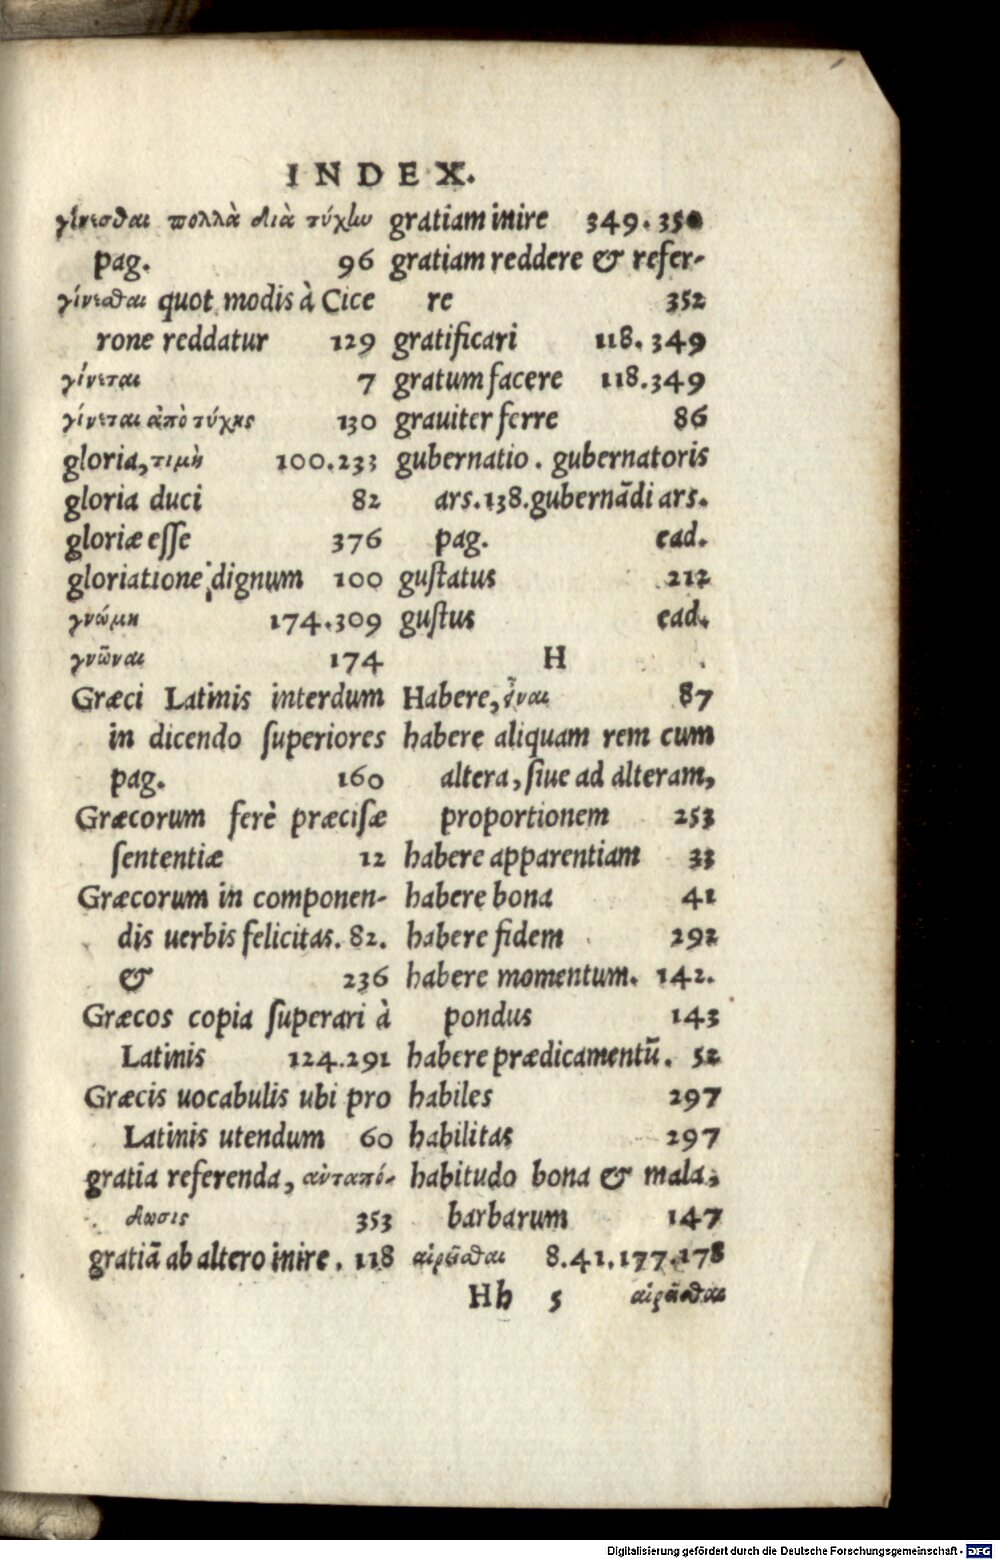 INDEX.
γίνεσθαι πολλὰ διὰ τύχην
pag. 96
γίνεσθαι quot modis à Cice
rone reddatur 129
γίνεται 7
γίνεται ἀπὸ τύχης 130
gloria, τιμὴ 100.233
gloria duci 82
gloriæ eſſe 376
gloriatione dignum 100
γνώμη 174.309
γνῶναι 174
Græci Latinis interdum
in dicendo ſuperiores
pag. 160
Græcorum ferè præciſæ
ſententiæ 12
Græcorum in componen-
dis uerbis felicitas. 82.
& 236
Græcos copia ſuperari à
Latinis 124.291
Græcis uocabulis ubi pro
Latinis utendum 60
gratia referenda, αὐταπό-
δωσις 353
gratiã ab altero inire. 118
gratiam inire 349.350
gratiam reddere & refer-
re 352
gratificari 118.349
gratum facere 118.349
grauiter ferre 86
gubernatio. gubernatoris
ars. 138. gubernãdi ars.
pag. ead.
guſtatus 212
guſtus ead.
H
Habere, εἶναι 87
habere aliquam rem cum
altera, ſiue ad alteram,
proportionem 253
habere apparentiam 33
habere bona 41
habere fidem 292
habere momentum. 142.
pondus 143
habere prædicamentũ. 52
habiles 297
habilitas 297
habitudo bona & mala;
barbarum 147
αἱρεῖσθαι 8.41.177.178
Hh 5 αἱρεῖσθαι
Digitalisierung gefördert durch die Deutsche Forschungsgemeinschaft - DFG